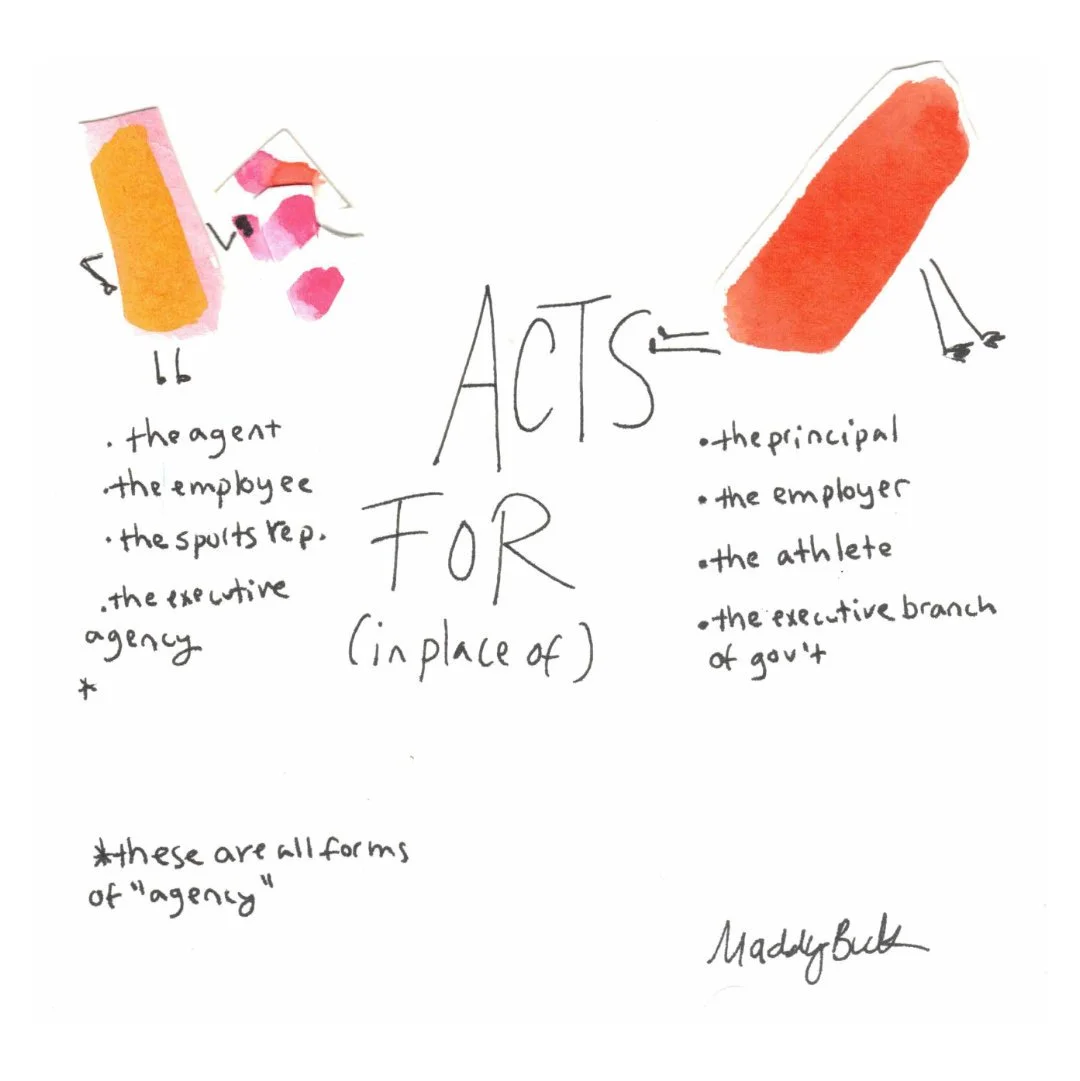 ACTS
FOR
(in place of)
• the agent
• the employee
• the sports rep.
• the executive
agency
*
• the principal
• the employer
• the athlete
• the executive branch
of gov't
*these are all forms
of "agency"
Maddy Buck